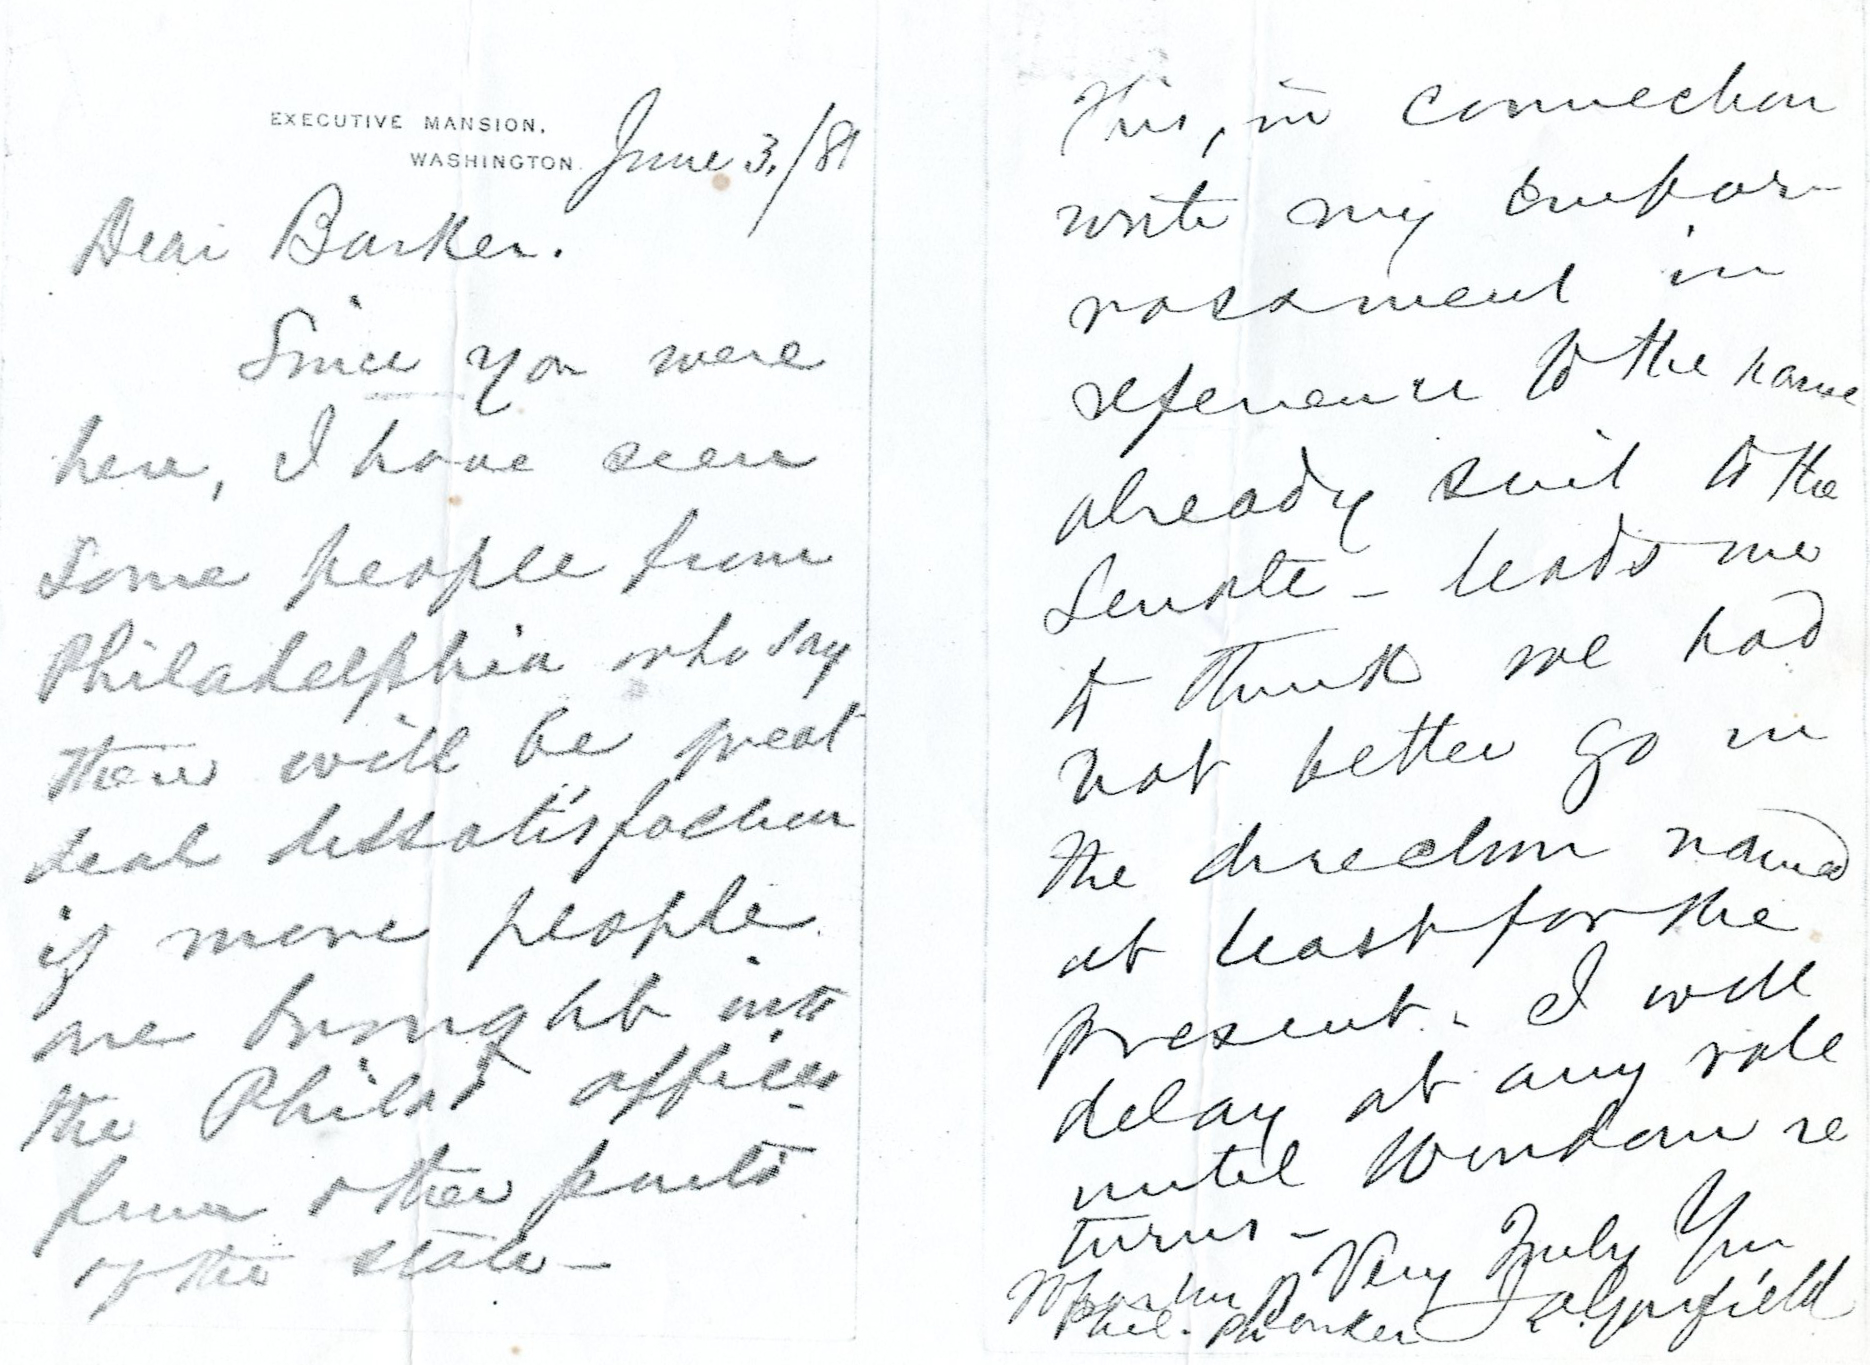 EXECUTIVE MANSION,
WASHINGTON. June 3, /81
Dear Barker.
Since you were
here, I have seen
some people from
Philadelphia who say
there will be great
deal dissatisfaction
if more people
are brought into
the Philad offices
from other parts
of the state—
This, in connection
with my embar-
rassment in
reference to the name
already sent to the
Senate – leads me
to think we had
not better go in
the direction named
at least for the
present. I will
delay at any rate
until Windom re
turns–
Very Truly Yrs
J A Garfield
Wharton Barker
Phil. Pa